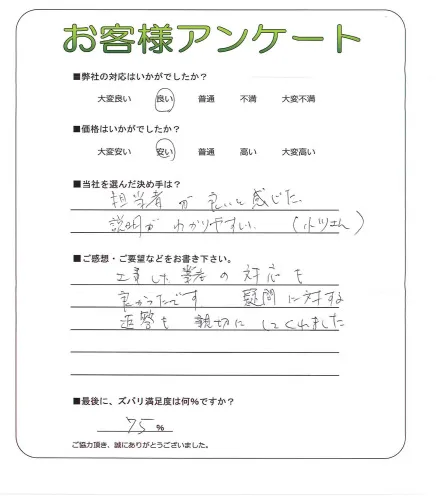 お客様アンケート
■弊社の対応はいかがでしたか?
大変良い 良い 普通 不満 大変不満
■価格はいかがでしたか?
大変安い 安い 普通 高い 大変高い
■当社を選んだ決め手は?
担当者が良いと感じた
説明がわかりやすい
■ご感想・ご要望などをお書き下さい。
工事した業者の対応も
良かったです 疑問に対する
返答も親切にしてくれました
■最後に、ズバリ満足度は何%ですか?
75%
ご協力頂き、誠にありがとうございました。